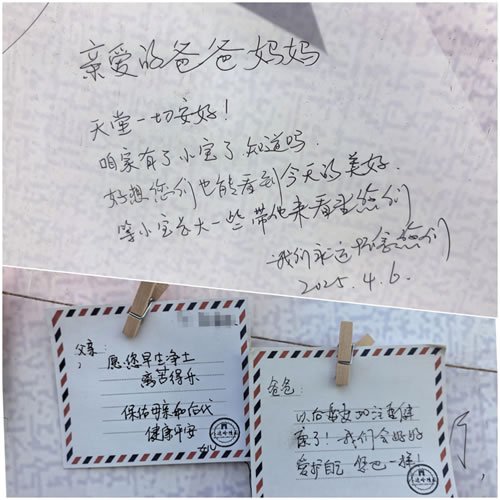 亲爱的爸爸妈妈
天堂一切安好！
咱家有了小宝了知道吗
好想您们也能看到今天的美好.
等小宝长大一些带他来看看您们
我们永远怀念您们
2025.4.6.
父亲：
愿您早生净土
离苦得乐
保佑母亲和后代
健康平安
爸爸：
以后要更加注重健
康了！我们会好好
爱护自己 您也一样！